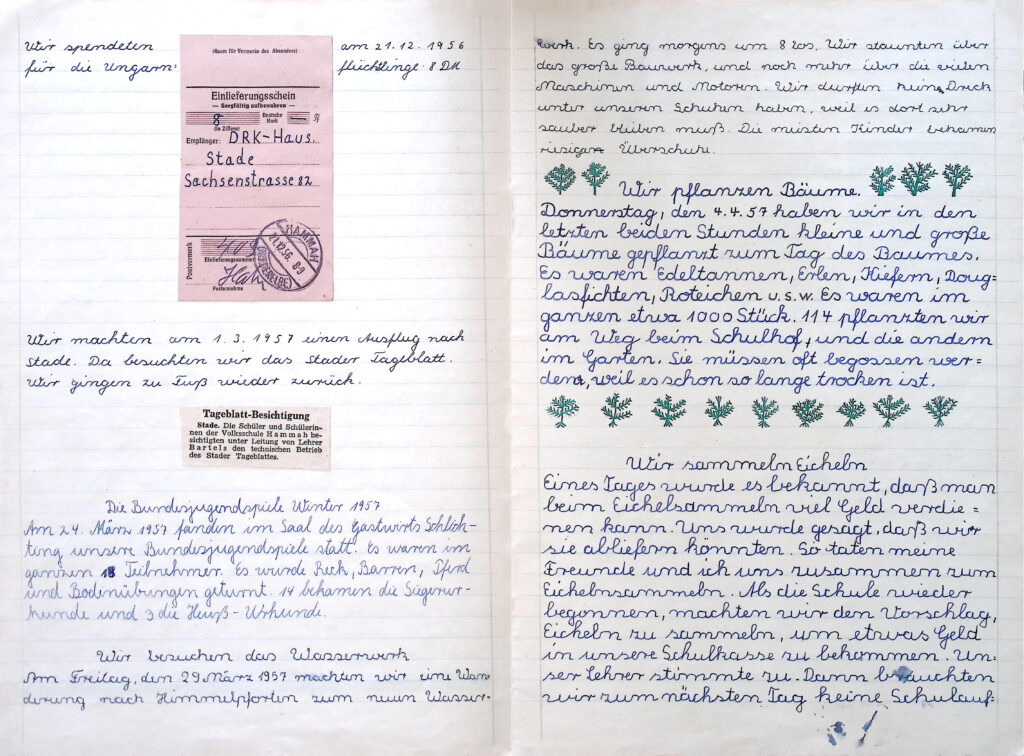 Wir spendeten am 21.12.1956
für die Ungarn= flüchtlinge 8 DM
(Raum für Vermerke des Absenders)
Einlieferungsschein
— Sorgfältig aufbewahren —
8 Deutsche Mark — Pf
(in Ziffern)
Empfänger: DRK-Haus.
Stade
Sachsenstrasse 82
Postvermerk
409
Einlieferungsnummer
Postannahme
HAMMAH
21.12.56. 8-9
Wir machten am 1.3.1957 einen Ausflug nach
Stade. Da besuchten wir das Stader Tageblatt.
Wir gingen zu Fuß wieder zurück.
Tageblatt-Besichtigung
Stade. Die Schüler und Schülerin-
nen der Volksschule Hammah be-
sichtigten unter Leitung von Lehrer
Bartels den technischen Betrieb
des Stader Tageblattes.
Die Bundesjugendspiele Winter 1957
Am 24. März 1957 fanden im Saal des Gastwirts Schlich-
ting unsere Bundesjugendspiele statt. Es waren im
ganzen Teilnehmer. Es wurde Reck, Barren, Pferd
und Bodenübungen geturnt. 14 bekamen die Siegerur-
kunde und 3 die Heuß-Urkunde.
Wir besuchen das Wasserwerk
Am Freitag, den 29. März 1957 machten wir eine Wan-
derung nach Himmelpforten zum neuen Wasser-
werk. Es ging morgens um 8 los. Wir staunten über
das große Bauwerk, und noch mehr über die vielen
Maschinen und Motoren. Wir durften keinen Dreck
unter unseren Schuhen haben, weil es dort sehr
sauber bleiben muß. Die meisten Kinder bekamen
riesige Überschuhe.
Wir pflanzen Bäume.
Donnerstag, den 4.4.57 haben wir in den
letzten beiden Stunden kleine und große
Bäume gepflanzt zum Tag des Baumes.
Es waren Edeltannen, Erlen, Kiefern, Doug-
lasfichten, Roteichen u.s.w. Es waren im
ganzen etwa 1000 Stück. 114 pflanzten wir
am Weg beim Schulhof, und die andern
im Garten. Sie müssen oft begossen wer=
den, weil es schon so lange trocken ist.
Wir sammeln Eicheln
Eines Tages wurde es bekannt, daß man
beim Eichelsammeln viel Geld verdie=
nen kann. Uns wurde gesagt, daß wir
sie abliefern könnten. So taten meine
Freunde und ich uns zusammen zum
Eichelnsammeln. Als die Schule wieder
begonnen, machten wir den Vorschlag,
Eicheln zu sammeln, um etwas Geld
in unsere Schulkasse zu bekommen. Un-
ser Lehrer stimmte zu. Dann brauchten
wir zum nächsten Tag keine Schulauf=